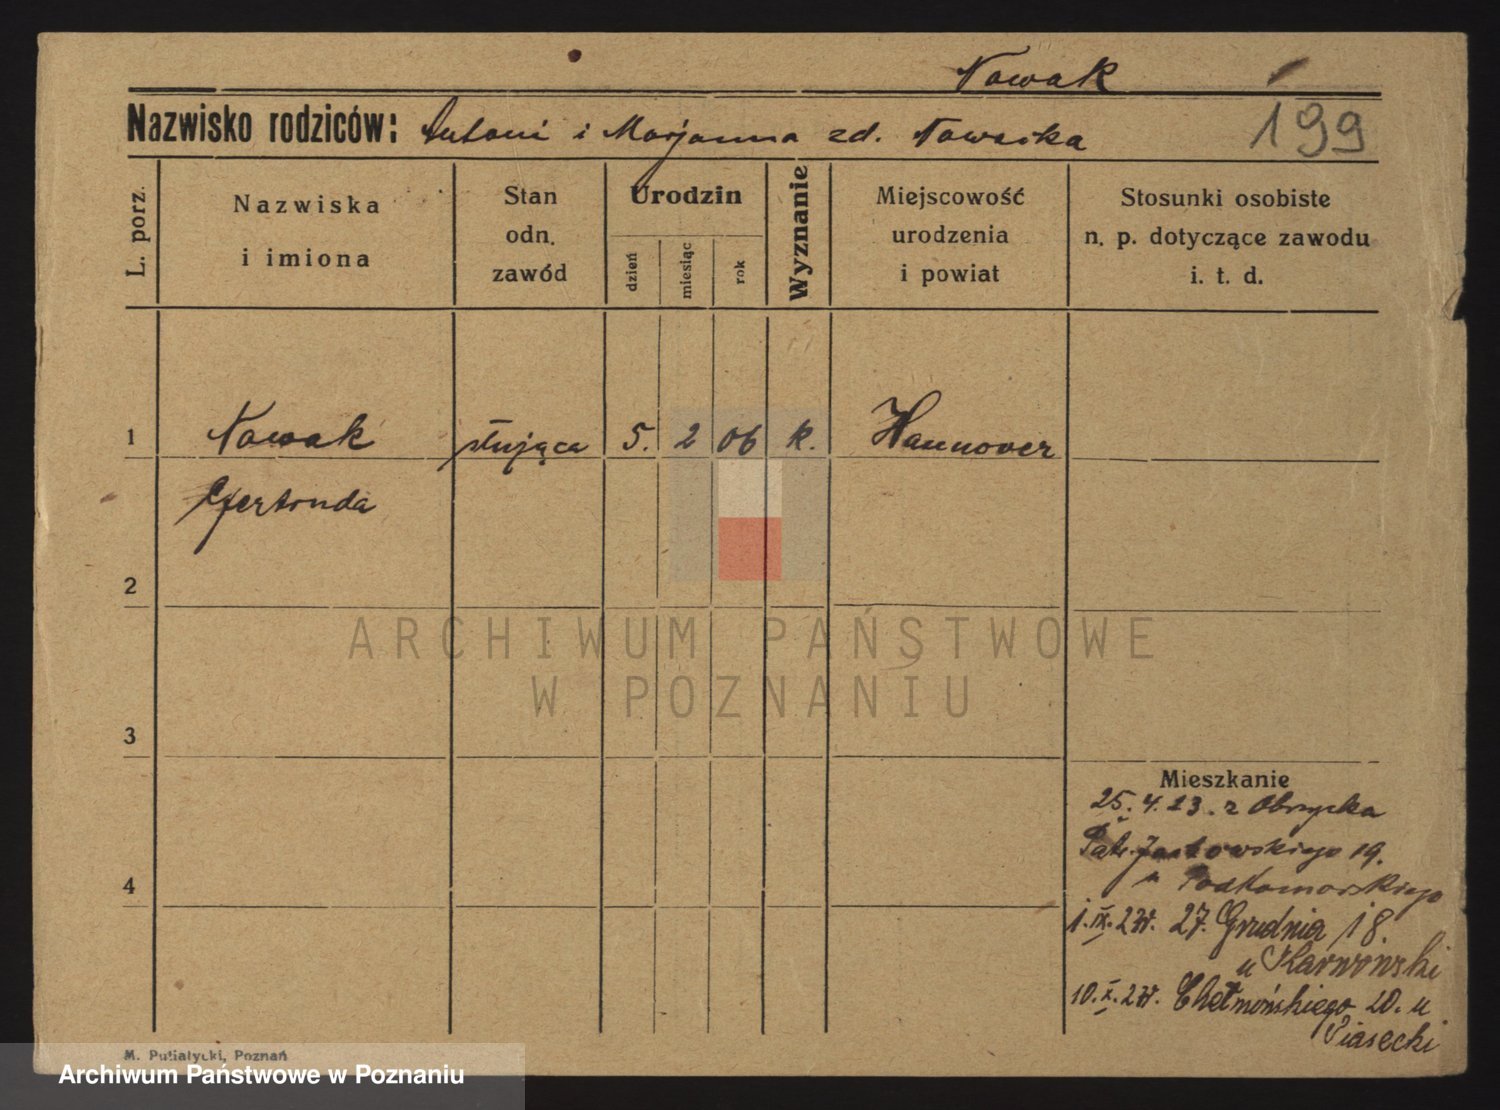 Nowak
Nazwisko rodziców: Antoni i Marjanna zd. Nowacka 199
L. porz.
Nazwiska i imiona
Stan odn. zawód
Urodzin
dzień
miesiąc
rok
Wyznanie
Miejscowość urodzenia i powiat
Stosunki osobiste n. p. dotyczące zawodu i. t. d.
1 Nowak służąca 5. 2 06 k. Hannover
Gertruda
2
3
4
Mieszkanie
25. 4. 23. z Obrzycka
Jackowskiego 19.
u Podkomorskiego
1. IX. 27r. 27. Grudnia 18.
u Karwowski
10. X. 27r. Chełmońskiego 20. u
Piasecki
M. Putiatycki, Poznań
ARCHIWUM PAŃSTWOWE
W POZNANIU
Archiwum Państwowe w Poznaniu